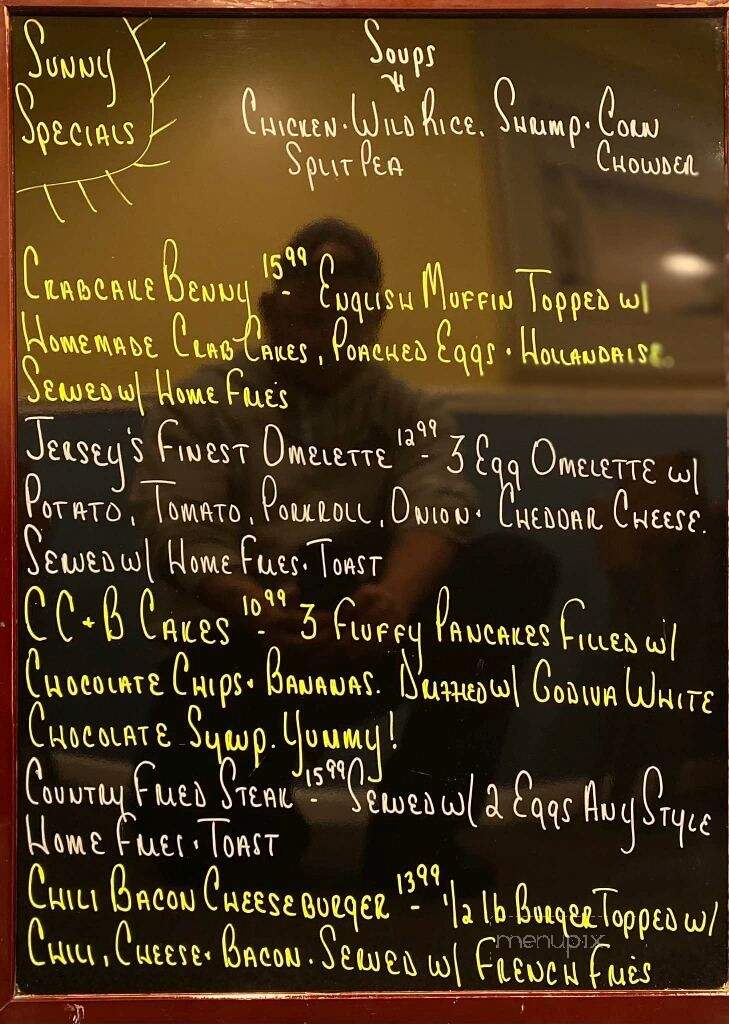 Sunny
Specials
Soups
Chicken · Wild Rice, Shrimp · Corn
Split Pea Chowder
Crabcake Benny 15.99 - English Muffin Topped w/
Homemade Crab Cakes, Poached Eggs · Hollandaise.
Served w/ Home Fries
Jersey's Finest Omelette 12.99 - 3 Egg Omelette w/
Potato, Tomato, Porkroll, Onion · Cheddar Cheese.
Served w/ Home Fries · Toast
CC+B Cakes 10.99 - 3 Fluffy Pancakes Filled w/
Chocolate Chips · Bananas. Drizzled w/ Godiva White
Chocolate Syrup. Yummy!
Country Fried Steak 15.99 - Served w/ 2 Eggs Any Style
Home Fries · Toast
Chili Bacon Cheeseburger 13.99 - 1/2 lb Burger Topped w/
Chili, Cheese · Bacon. Served w/ French Fries
menupix